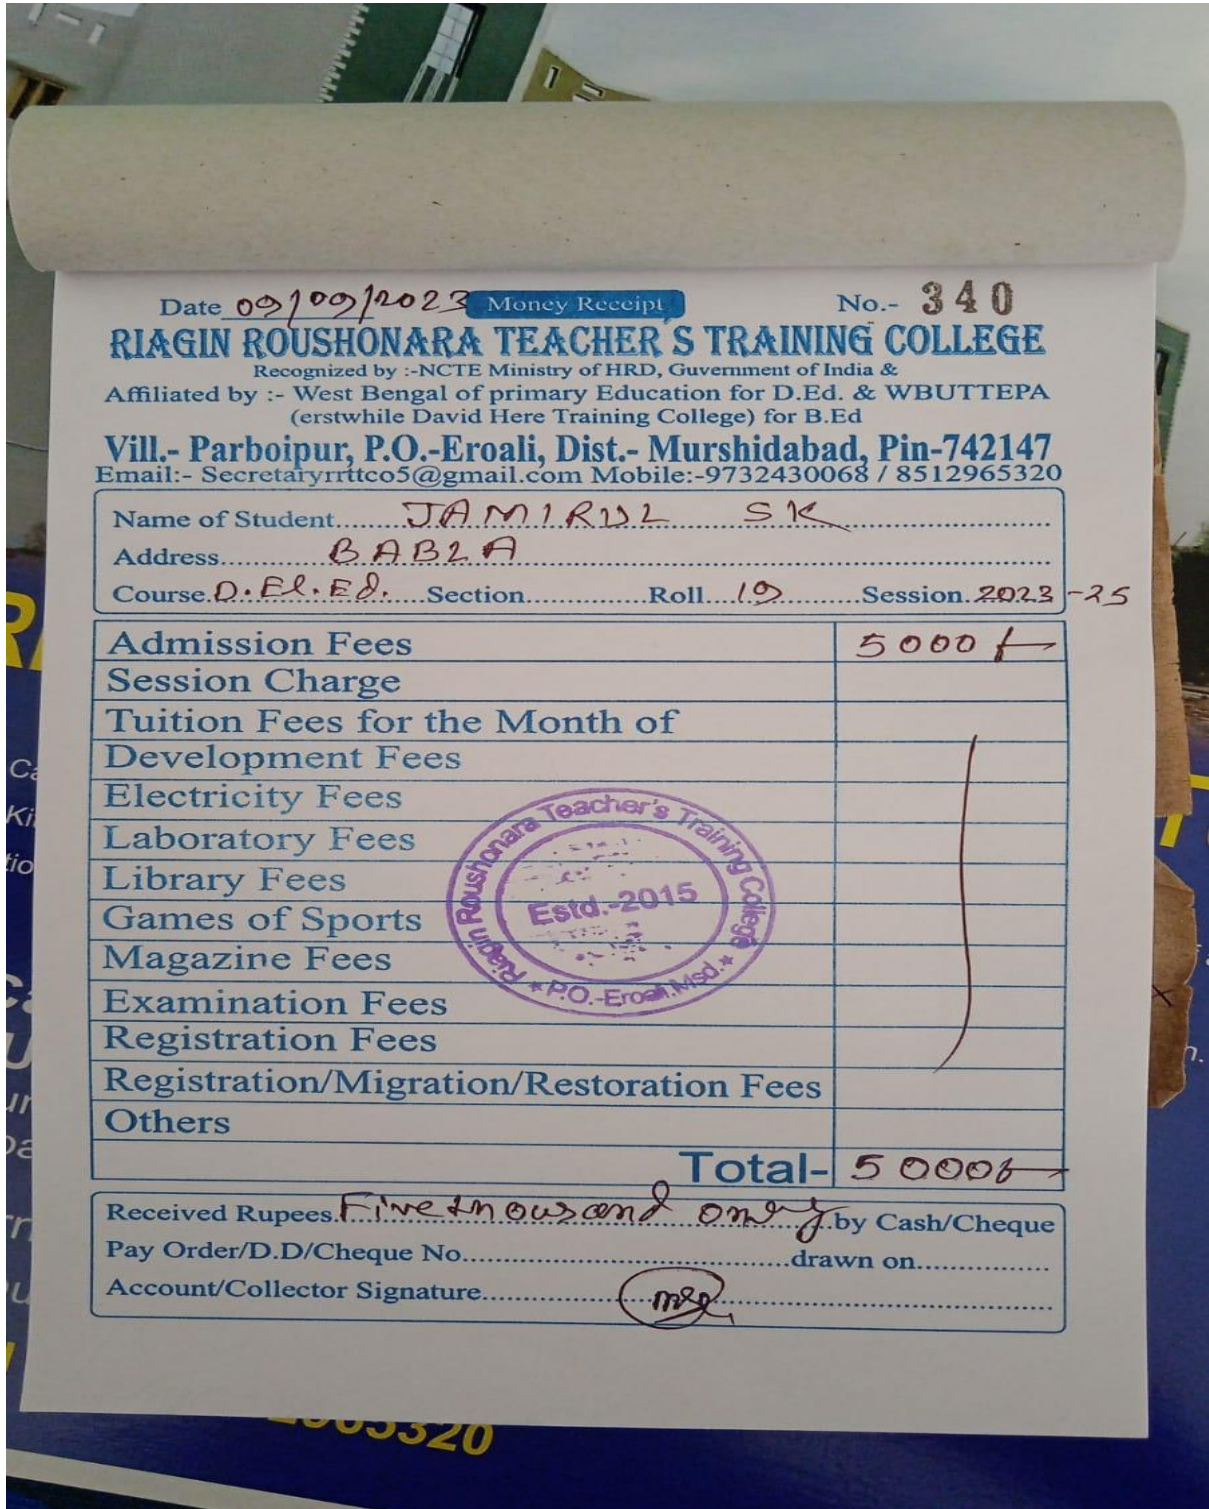 Date 09/09/2023 Money Receipt No.- 340
RIAGIN ROUSHONARA TEACHER'S TRAINING COLLEGE
Recognized by :-NCTE Ministry of HRD, Guvernment of India &
Affiliated by :- West Bengal of primary Education for D.Ed. & WBUTTEPA
(erstwhile David Here Training College) for B.Ed
Vill.- Parboipur, P.O.-Eroali, Dist.- Murshidabad, Pin-742147
Email:- Secretaryrrttco5@gmail.com Mobile:-9732430068 / 8512965320
Name of Student........JAMIRUL SK
Address...........BABLA
Course.D.El.Ed.....Section..............Roll...19..........Session.2023-25
Admission Fees 5000/-
Session Charge
Tuition Fees for the Month of
Development Fees
Electricity Fees
Laboratory Fees
Library Fees
Games of Sports
Magazine Fees
Examination Fees
Registration Fees
Registration/Migration/Restoration Fees
Others
Total- 5000/-
Riagin Roushonara Teacher's Training College
Estd.-2015
* P.O.-Eroali.Msd. *
Received Rupees.Five thousand only.by Cash/Cheque
Pay Order/D.D/Cheque No.......................................drawn on................
Account/Collector Signature................